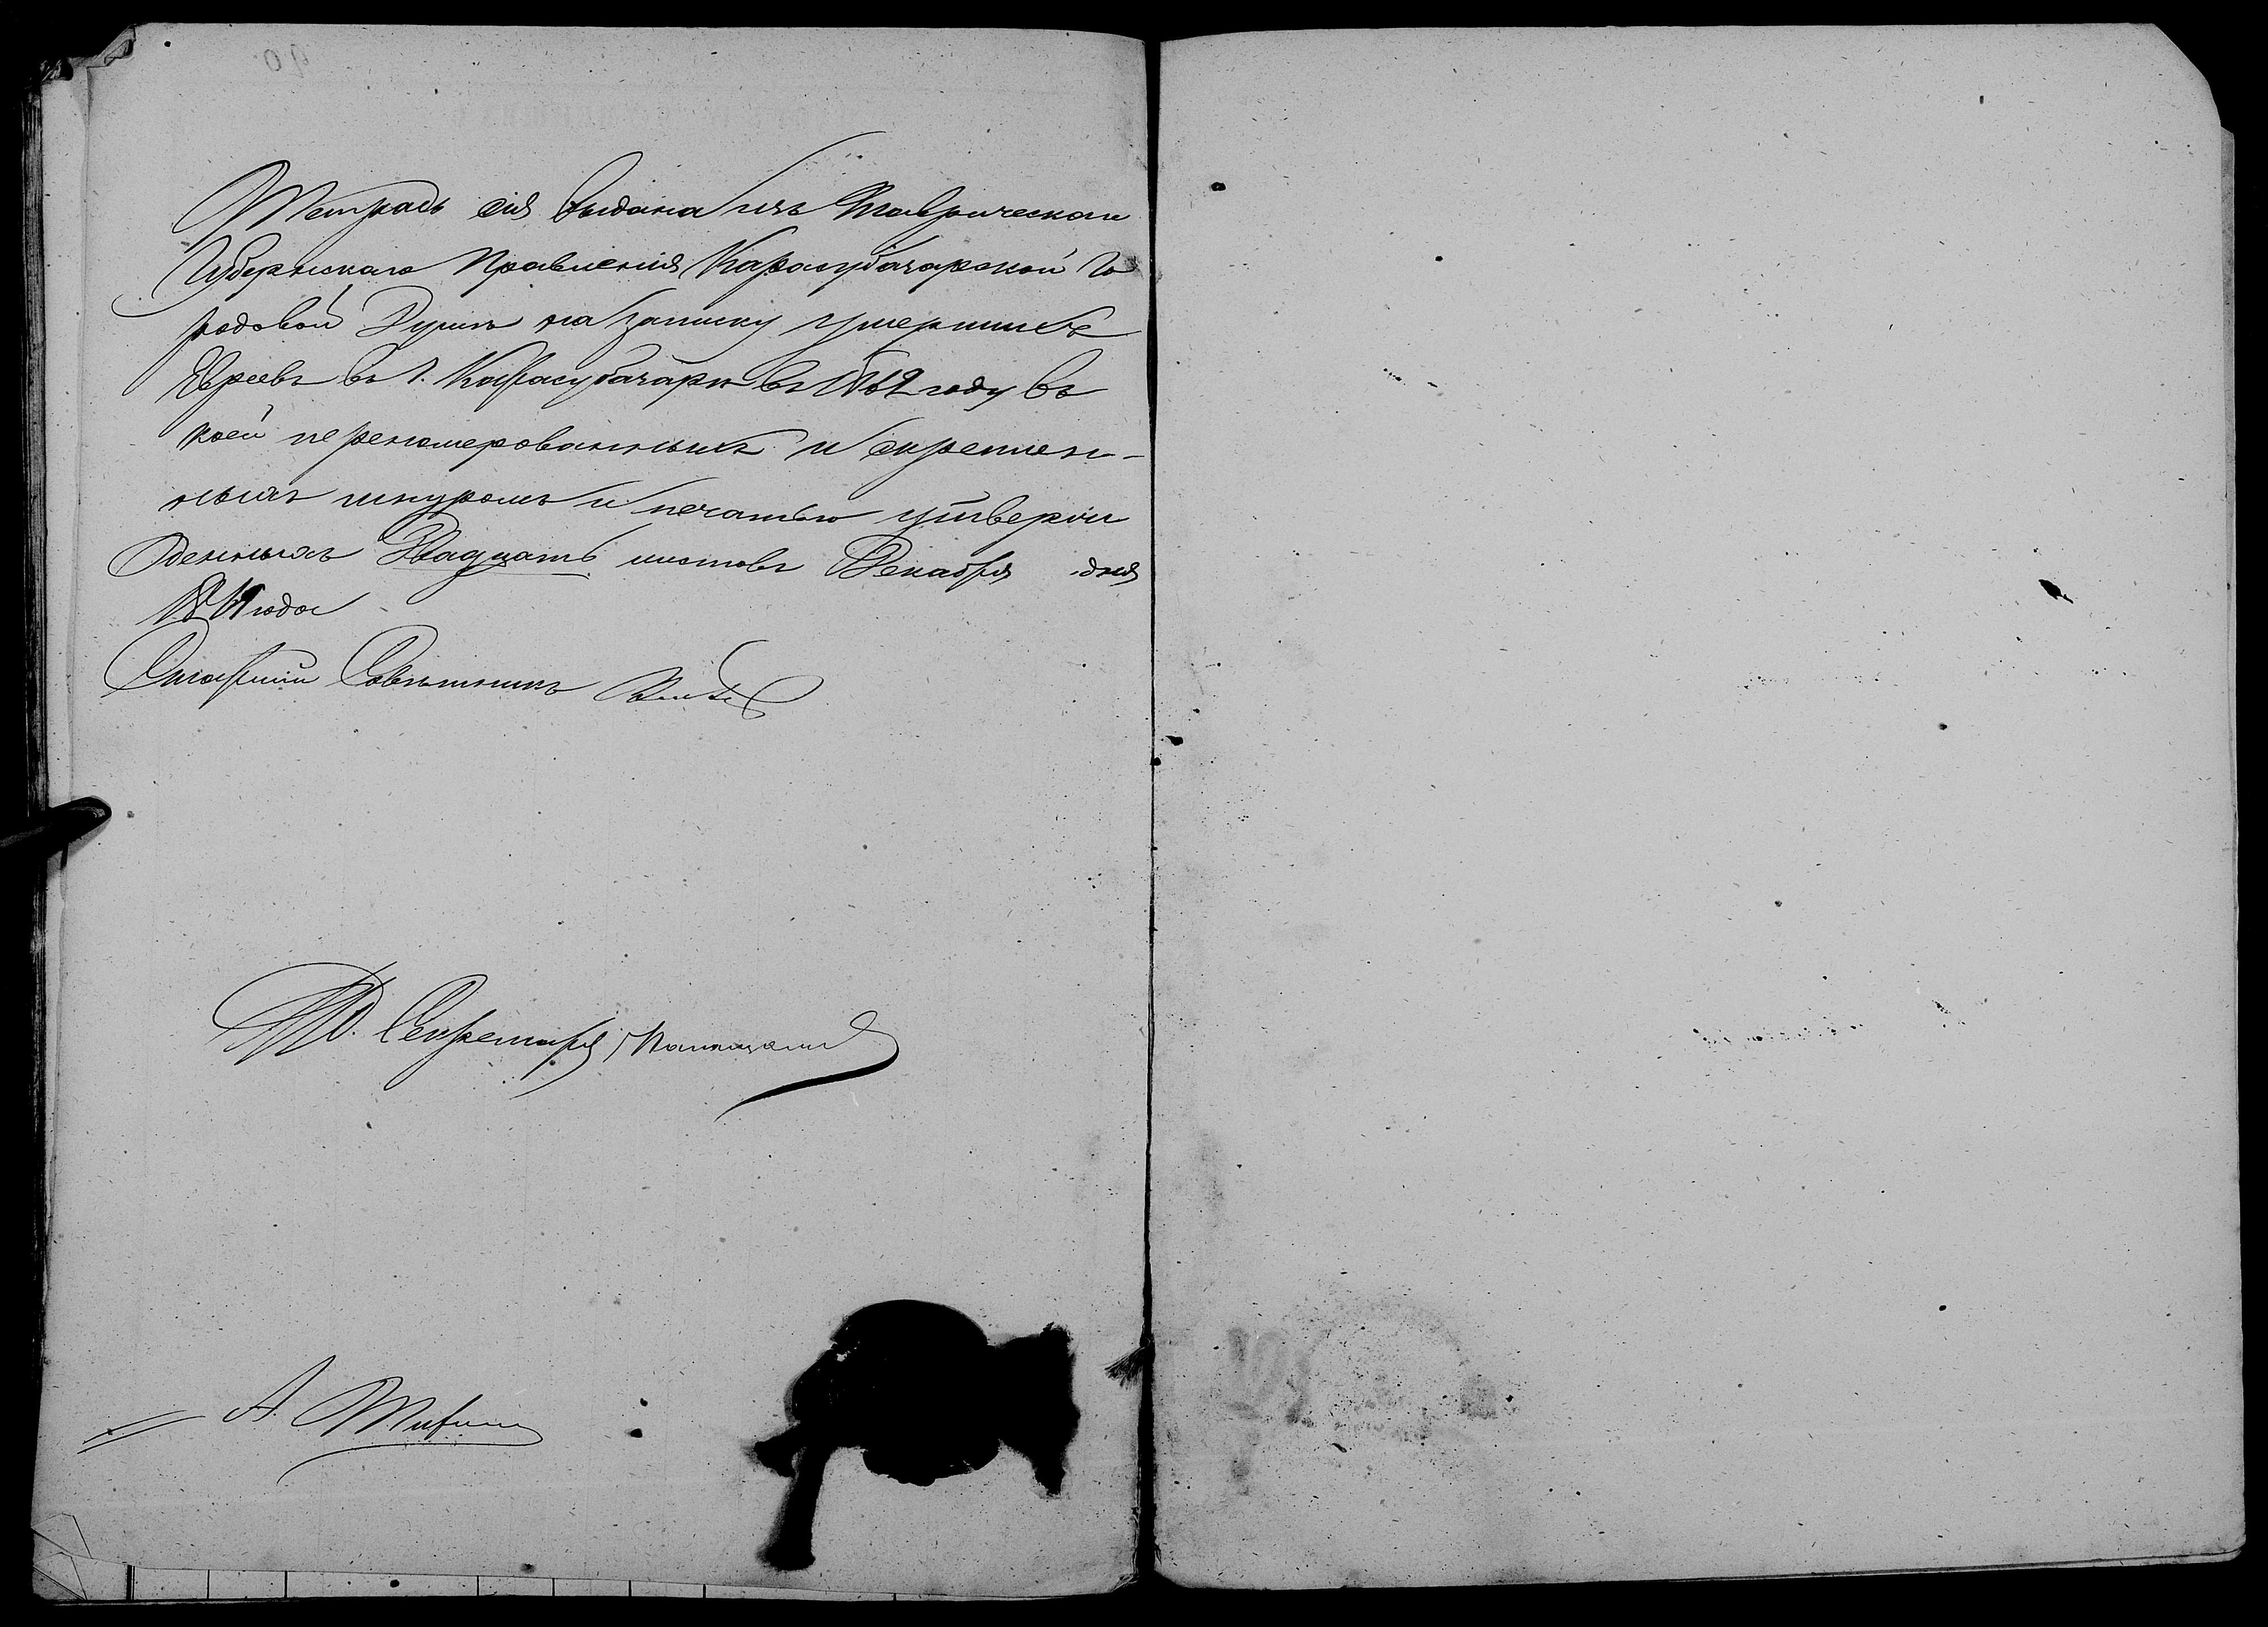 Тетрадь сія выдана изъ Таврическаго
Губернскаго Правленія Карасубазарской Го
родовой Думѣ на записку умершихъ
Евреевъ въ г. Карасубазарѣ въ 1862 году въ
коей перенумерованныхъ и скреплен-
ныхъ шнуромъ и печатью утверж
денныхъ Двадцать листовъ Декабря дня
1861 года
Старшій Совѣтникъ
И.Д. Секретаря
А.